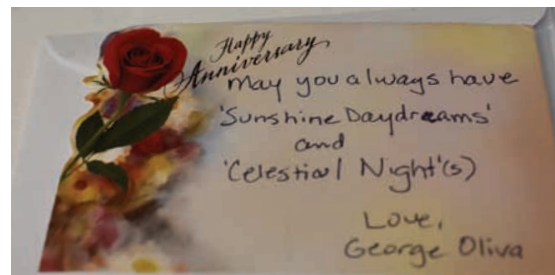 Happy
Anniversary
May you always have
'Sunshine Daydreams'
and
'Celestial Night'(s)
Love,
George Oliva